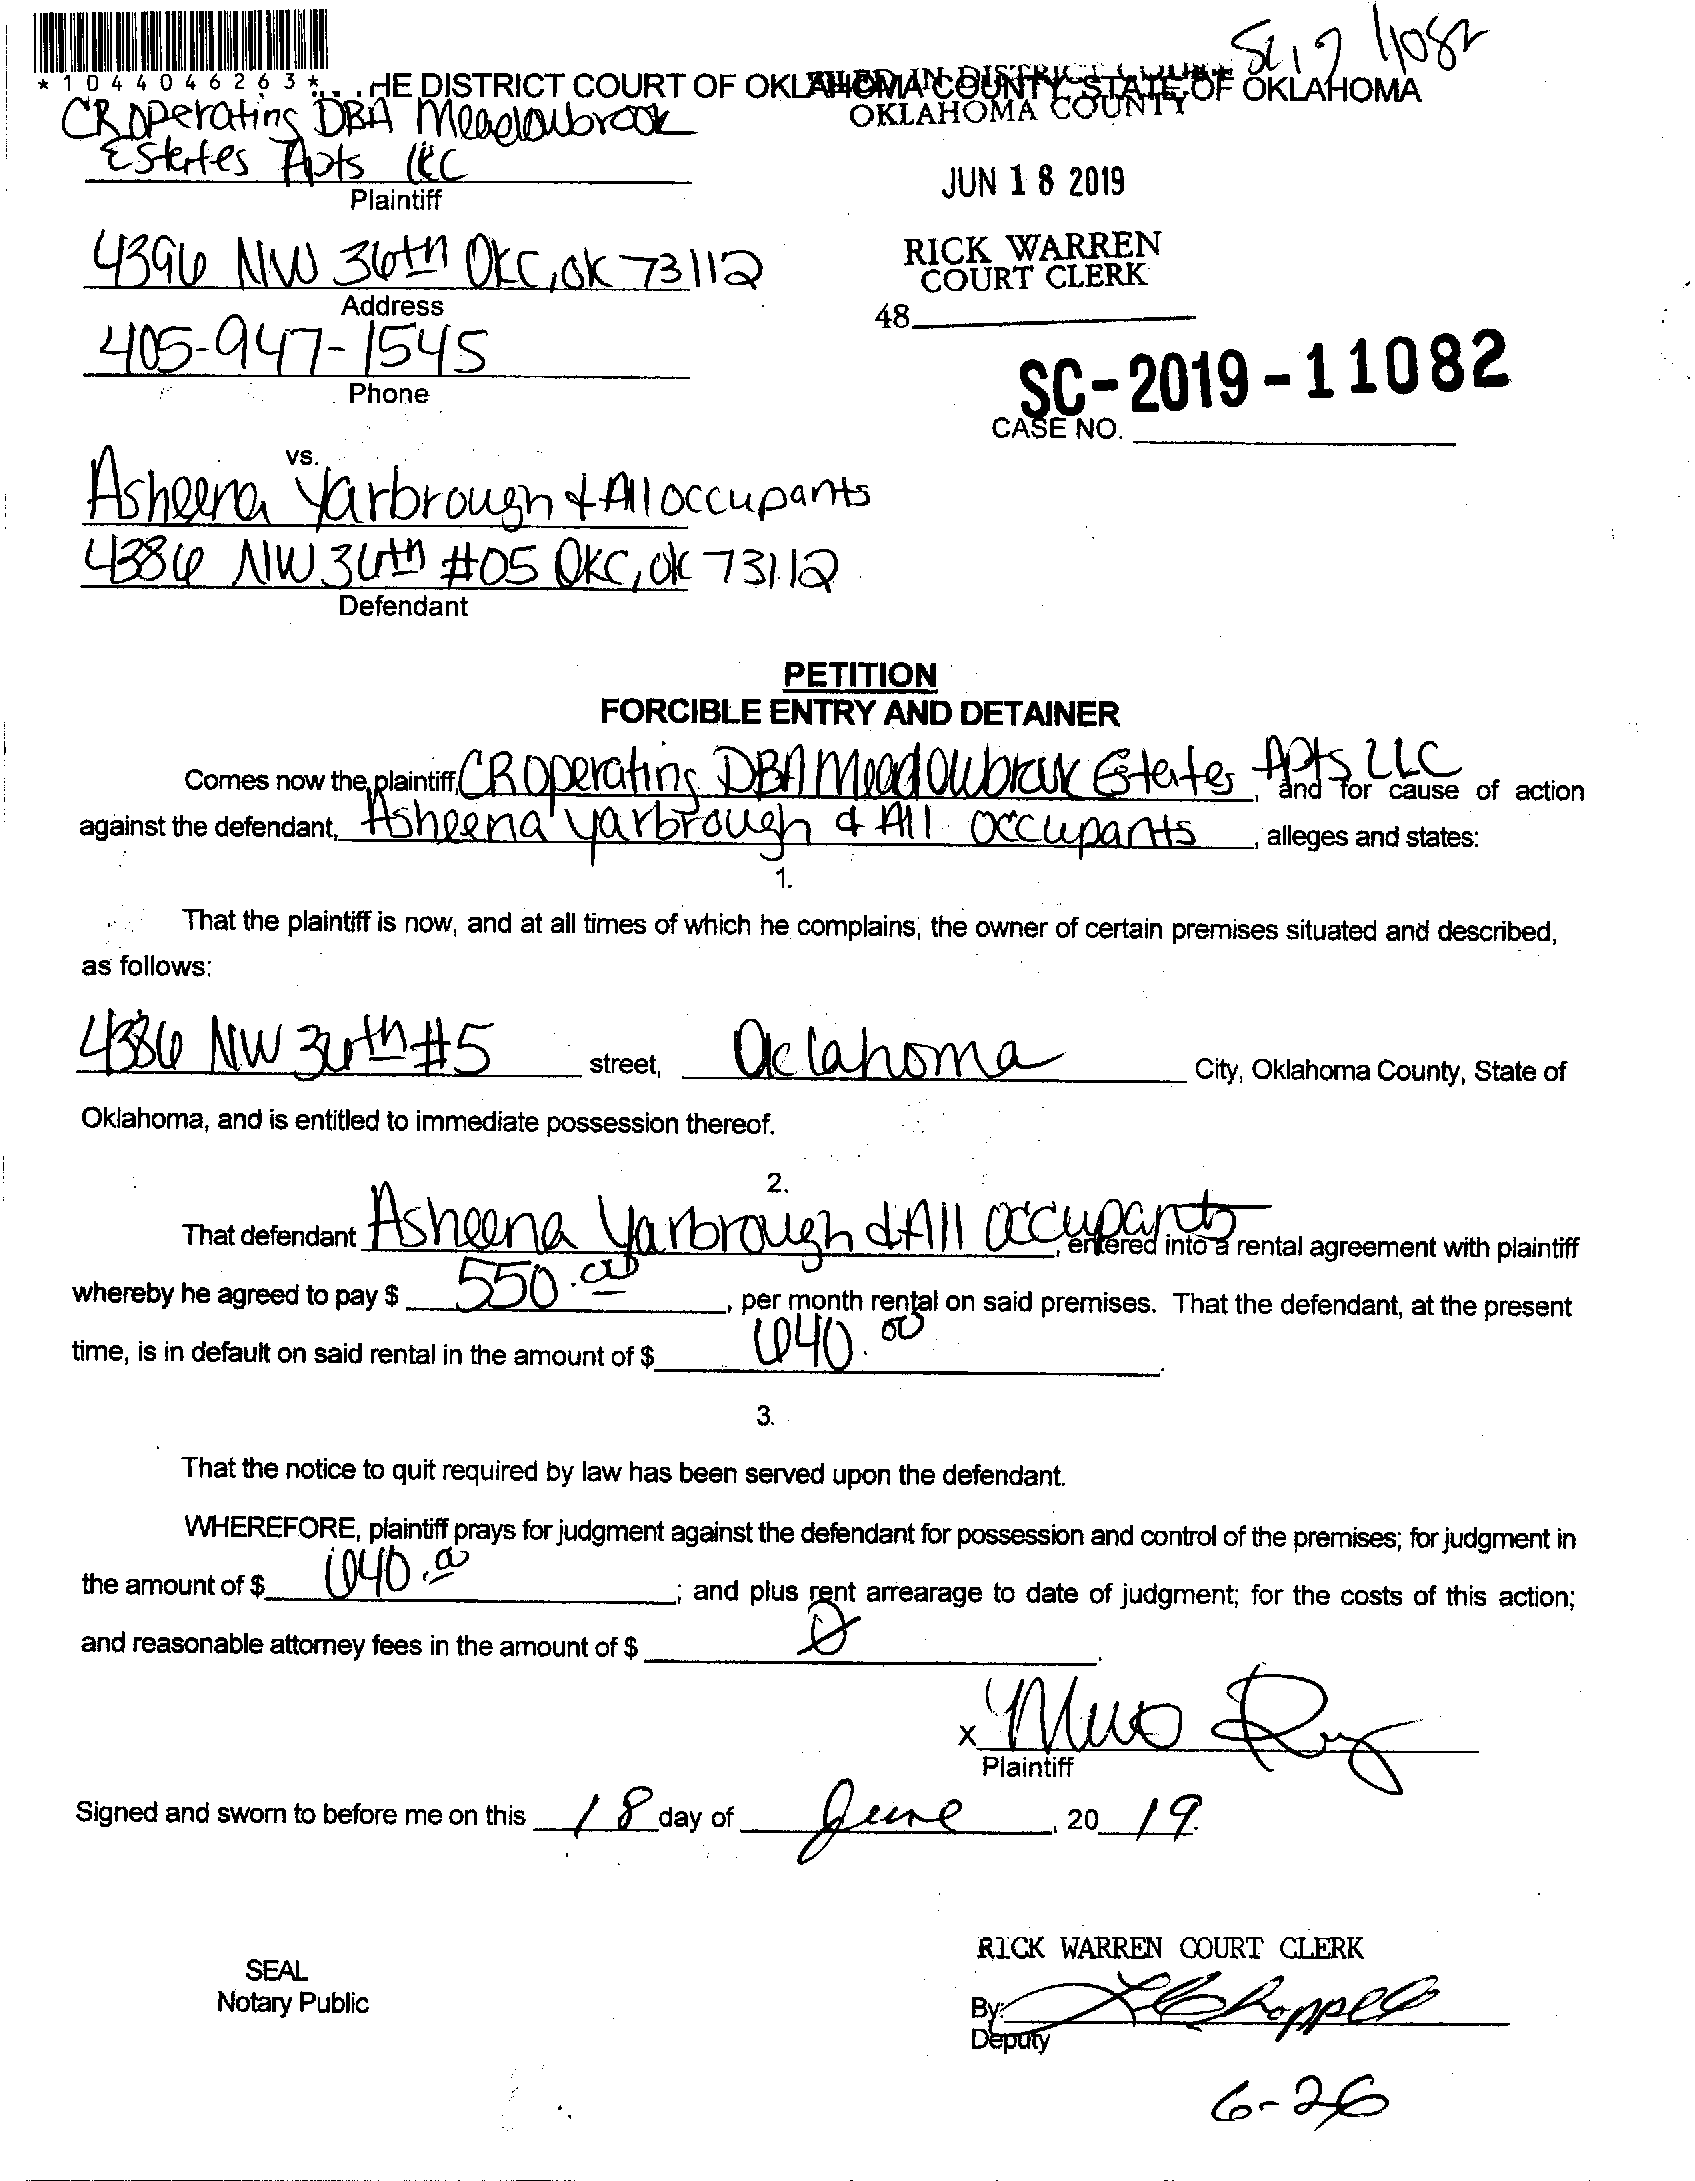 SC19 11082
*1044046263*
HE DISTRICT COURT OF OKLAHOMA COUNTY, STATE OF OKLAHOMA
FILED IN DISTRICT COURT
OKLAHOMA COUNTY
CR Operating DBA Meadowbrook
Estates Apts LLC
Plaintiff
JUN 18 2019
4396 NW 36th OKC, OK 73112
Address
RICK WARREN
COURT CLERK
48
405-947-1545
Phone
SC-2019-11082
CASE NO.
vs.
Asheena Yarbrough & All occupants
4386 NW 36th #05 OKC, OK 73112
Defendant
PETITION
FORCIBLE ENTRY AND DETAINER
Comes now the plaintiff, CR Operating DBA Meadowbrook Estates Apts LLC, and for cause of action
against the defendant, Asheena Yarbrough & All occupants, alleges and states:
1.
That the plaintiff is now, and at all times of which he complains, the owner of certain premises situated and described,
as follows:
4386 NW 36th #5 street, Oklahoma City, Oklahoma County, State of
Oklahoma, and is entitled to immediate possession thereof.
2.
That defendant Asheena Yarbrough & All occupants, entered into a rental agreement with plaintiff
whereby he agreed to pay $ 550.00, per month rental on said premises. That the defendant, at the present
time, is in default on said rental in the amount of $ 640.00.
3.
That the notice to quit required by law has been served upon the defendant.
WHEREFORE, plaintiff prays for judgment against the defendant for possession and control of the premises; for judgment in
the amount of $ 640.00; and plus rent arrearage to date of judgment; for the costs of this action;
and reasonable attorney fees in the amount of $ 0.
x
Plaintiff
Signed and sworn to before me on this 18 day of June, 20 19.
RICK WARREN COURT CLERK
SEAL
Notary Public
By: L Chappell
Deputy
6-26